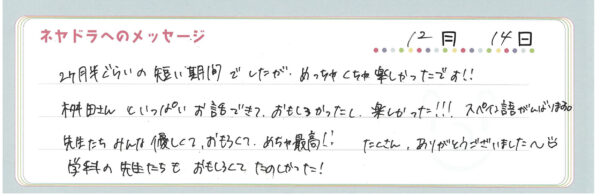 ネヤドラへのメッセージ
12月 14日
2ヶ月半ぐらいの短い期間でしたが、めっちゃくちゃ楽しかったです!!
桝田さんといっぱいお話できて、おもしろかったし、楽しかった!!! スペイン語がんばりまる
先生たちみんな優しくて、おもろくて、めちゃ最高!! たくさん、ありがとうございました〜
学科の先生たちもおもしろくてたのしかった!